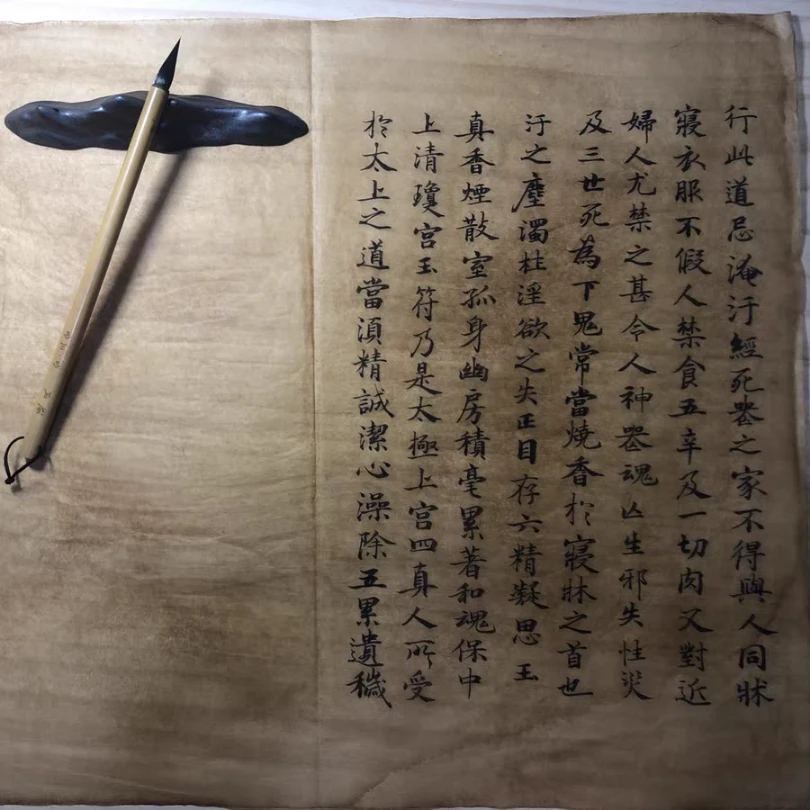 行此道忌淹汙經死喪之家不得與人同牀
寢衣服不假人禁食五辛及一切肉又對近
婦人尤禁之甚令人神喪魂亡生邪失性災
及三世死為下鬼常當燒香於寢牀之首也
汙之塵濁柱淫欲之失正目存六精凝思玉
真香煙散室孤身幽房積毫累著和魂保中
上清瓊宮玉符乃是太極上宮四真人所受
於太上之道當須精誠潔心澡除五累遺穢